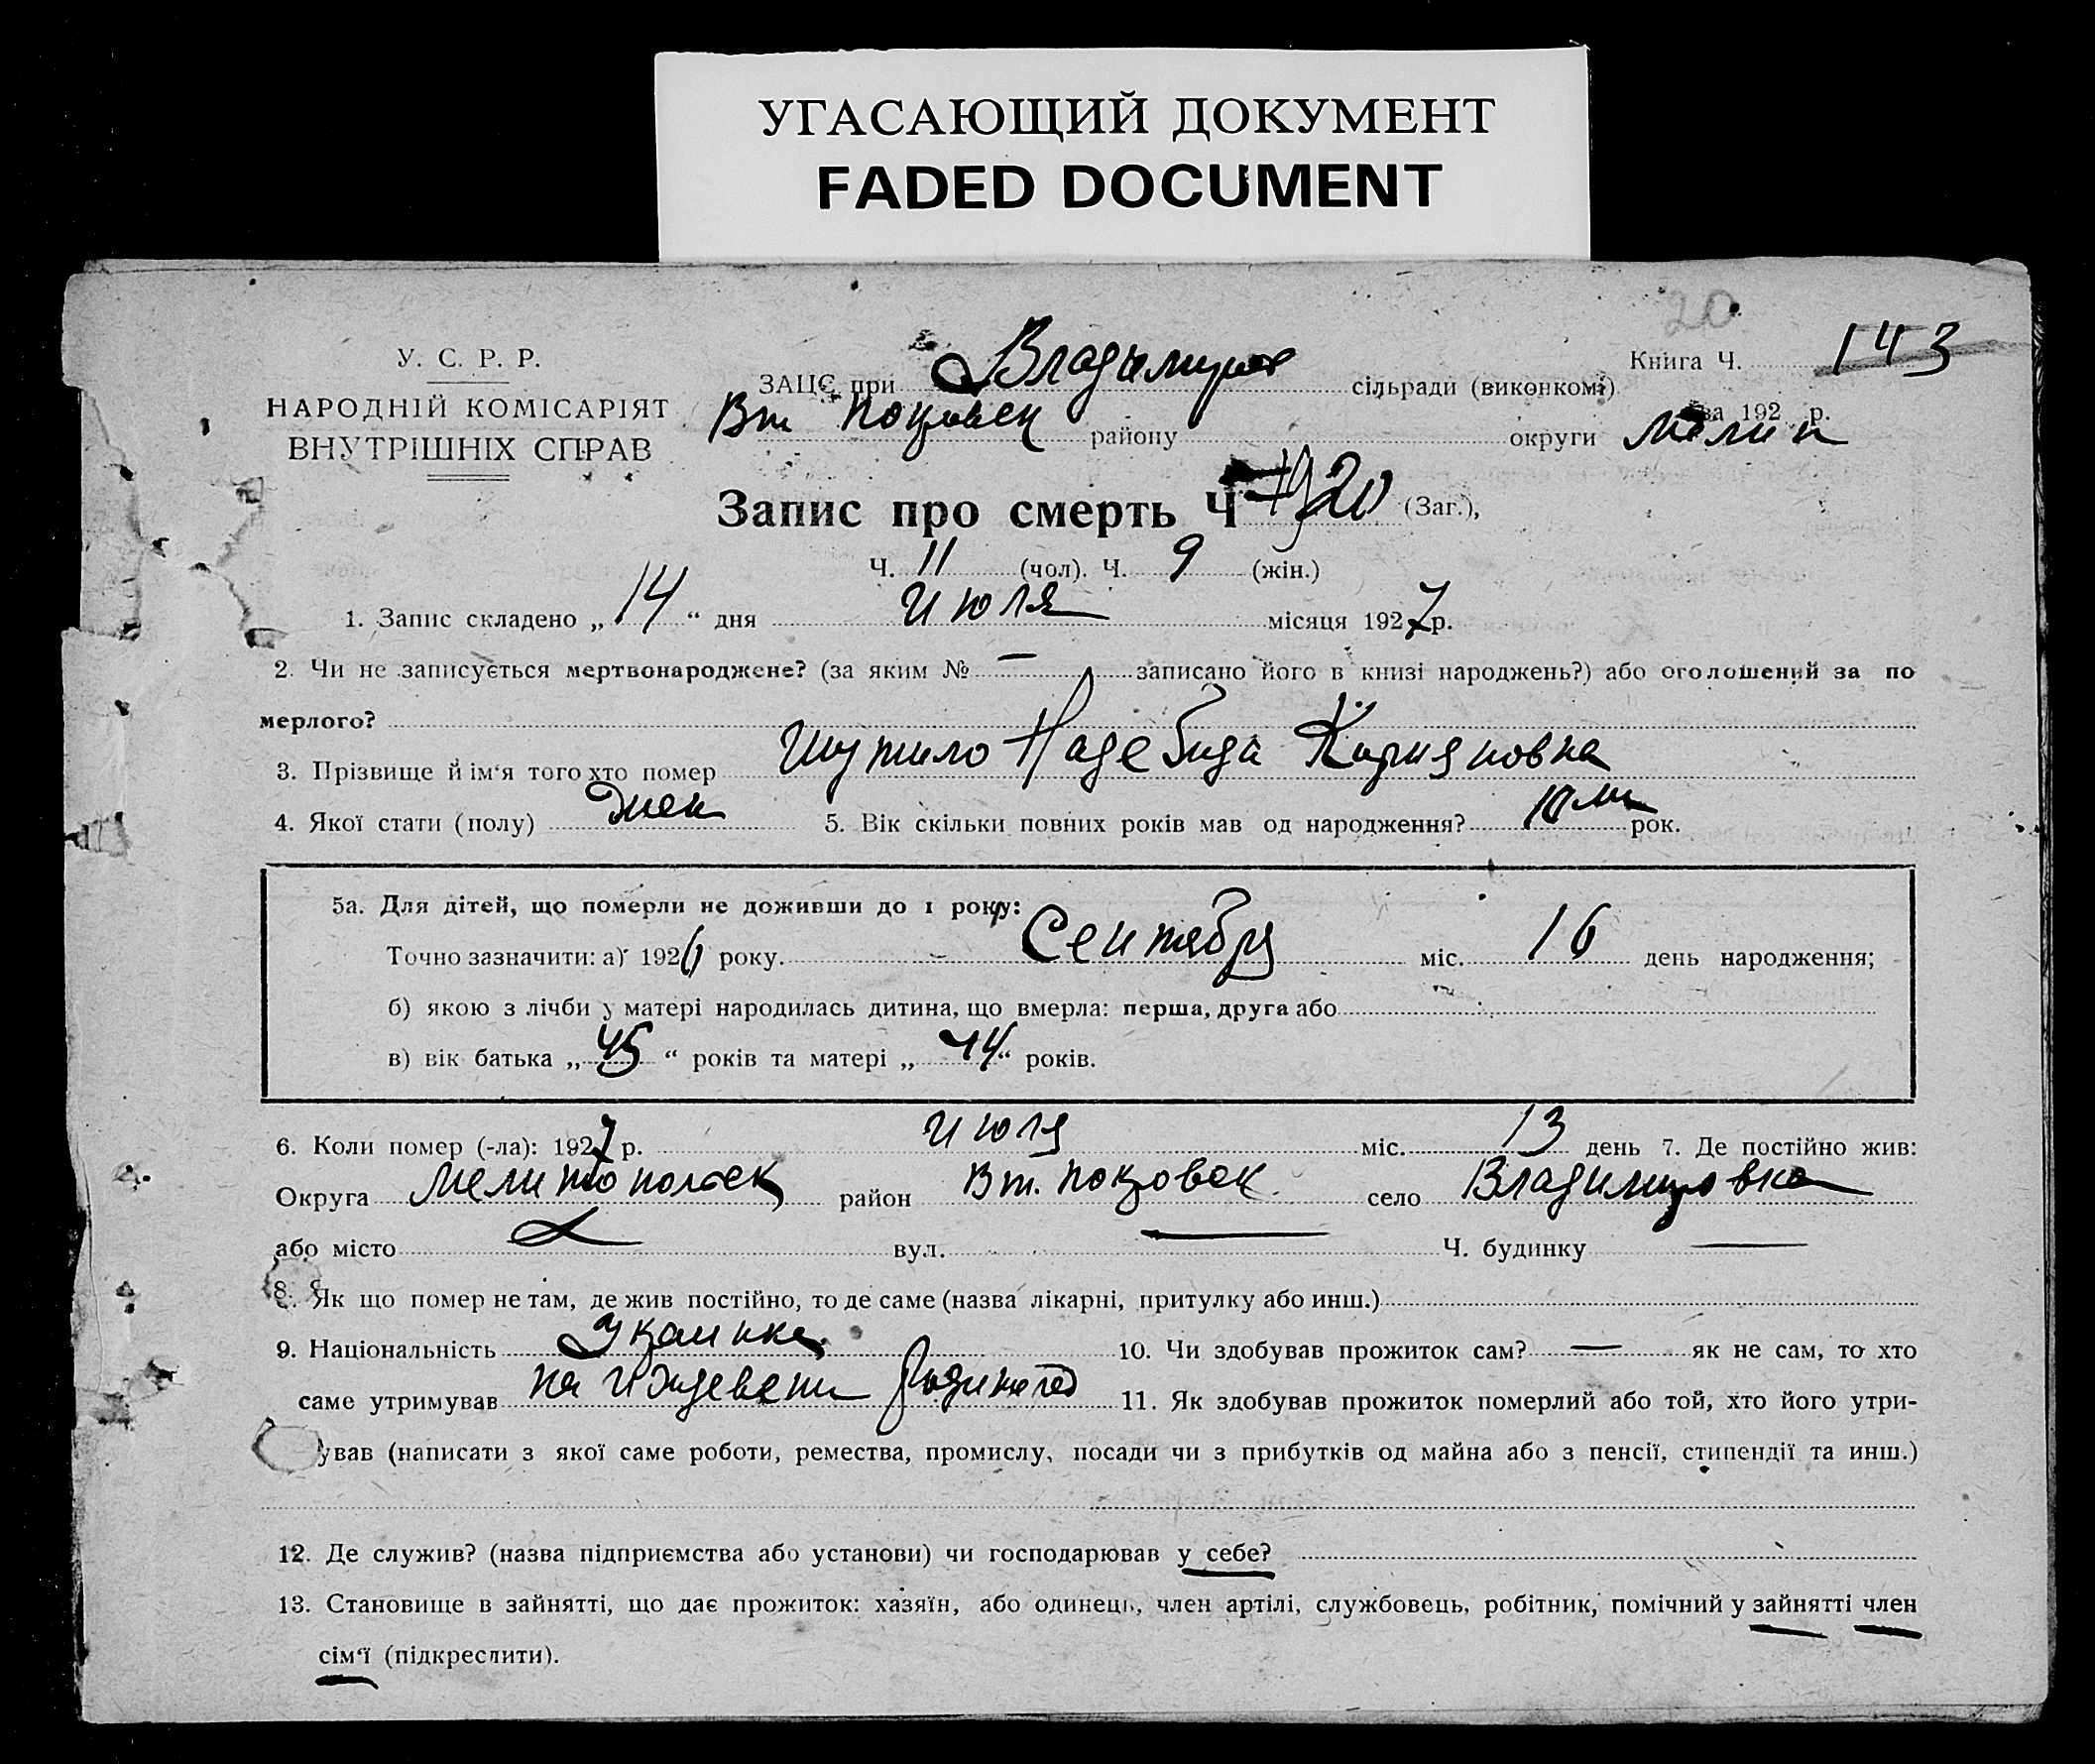 УГАСАЮЩИЙ ДОКУМЕНТ
FADED DOCUMENT
20
У. С. Р. Р.
НАРОДНІЙ КОМІСАРІЯТ
ВНУТРІШНІХ СПРАВ
Книга Ч. 143
за 192 р.
ЗАЦС при Владимиров сільради (виконкомі)
Вт Покровск району округи Мелит
Запис про смерть Ч 20 (Заг.),
Ч. 11 (чол). Ч. 9 (жін.)
1. Запис складено „14“ дня Июля місяця 1927 р.
2. Чи не записується мертвонароджене? (за яким № — записано його в книзі народжень?) або оголошений за по
мерлого?
3. Прізвище й ім'я того хто помер Шутило
4. Якої стати (полу) Жен 5. Вік скільки повних років мав од народження? 10 м рок.
5а. Для дітей, що померли не доживши до 1 року:
Точно зазначити: а) 1926 року. Сентября міс. 16 день народження;
б) якою з лічби у матері народилась дитина, що вмерла: перша, друга або
в) вік батька „45“ років та матері „44“ років.
6. Коли помер (-ла): 1927 р. Июля міс. 13 день 7. Де постійно жив:
Округа Мелитопольск район Вт. Покровск село Владимировка
або місто вул. — Ч. будинку —
8. Як що помер не там, де жив постійно, то де саме (назва лікарні, притулку або инш.)
9. Національність Украинка 10. Чи здобував прожиток сам? — як не сам, то хто
саме утримував на иждевени Родителей 11. Як здобував прожиток померлий або той, хто його утри-
ував (написати з якої саме роботи, ремества, промислу, посади чи з прибутків од майна або з пенсії, стипендії та инш.)
12. Де служив? (назва підприємства або установи) чи господарював у себе?
13. Становище в зайнятті, що дає прожиток: хазяїн, або одинець, член артілі, службовець, робітник, помічний у зайнятті член
сім'ї (підкреслити).